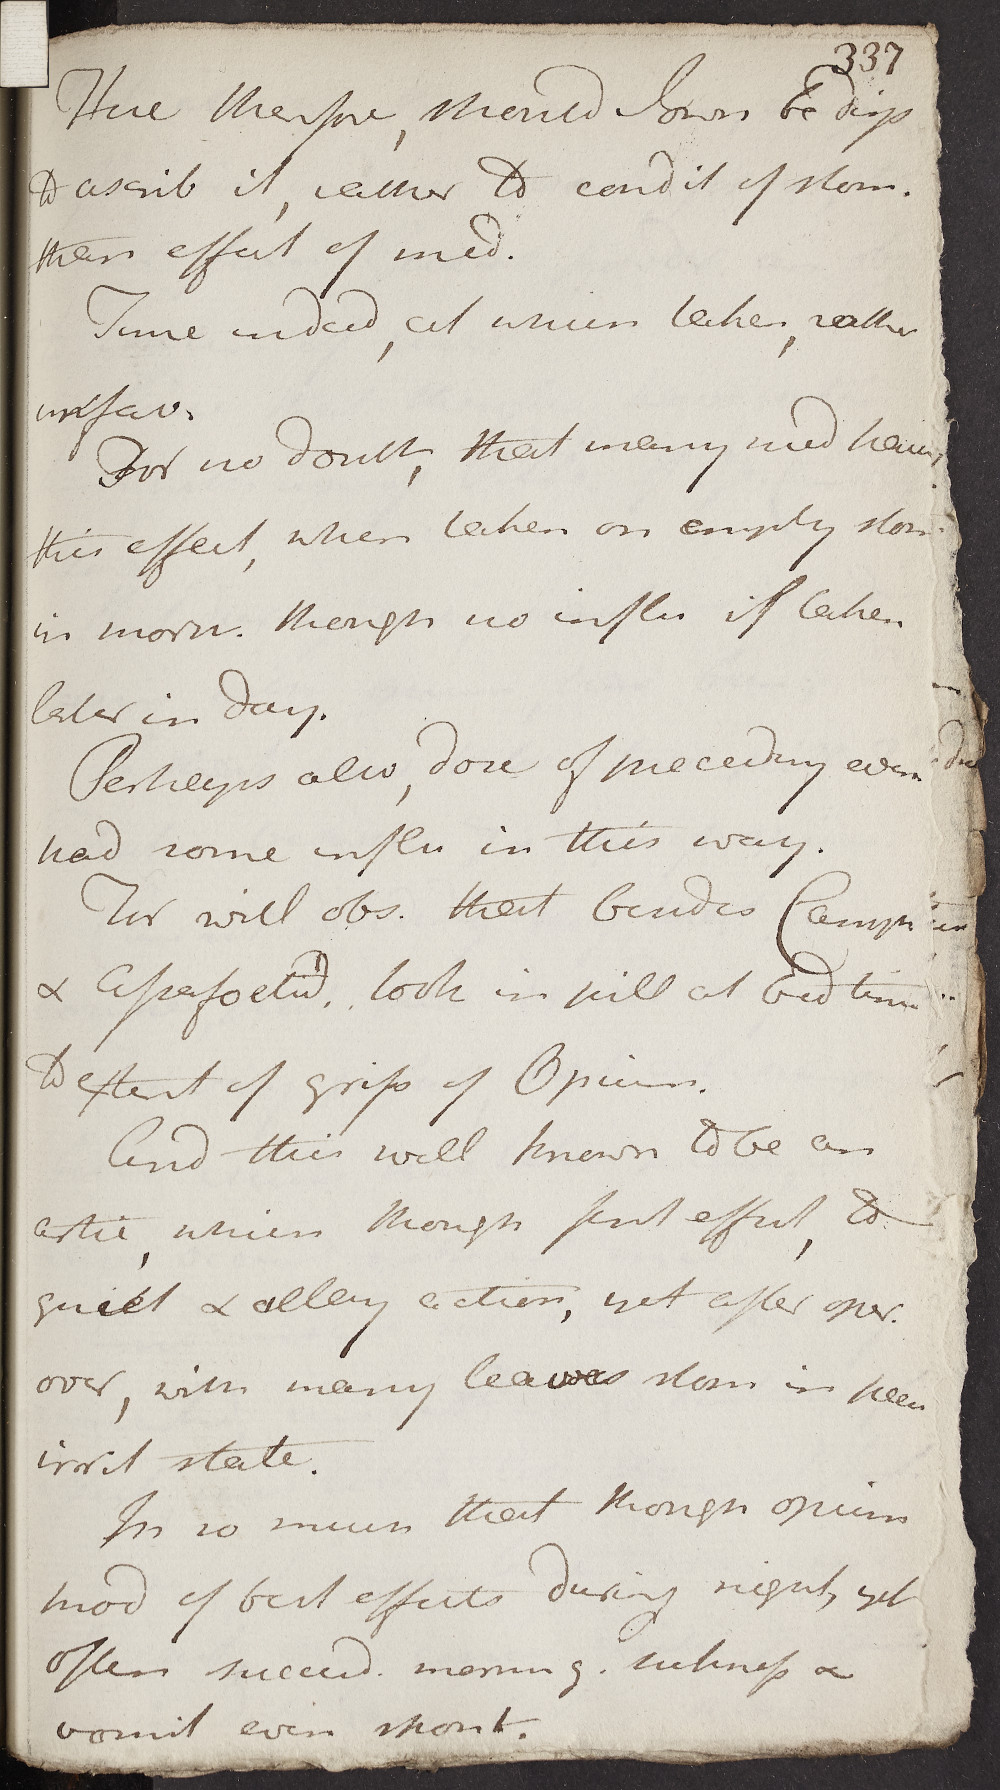 337
Here therefore, should I own be disp
to ascrib it, rather to condit of stom.
than effect of med.
Time indeed, at which taken, rather
unfav.
For no doubt, that many med having
this effect, when taken on empty stom
in morn. though no influ if taken
later in day.
Perhaps also, dose of preceding even
had some influ in this way.
For will obs. that besides Camph
& Assafoetid. took in pill at bed time
to extent of grifs of Opium.
And this well known to be an
artic, which though first effect, to
quiet & allay action, yet after oper.
over, with many leaves stom in pecu
irrit state.
In so much that though opium
prod of best effects during night, yet
often succeed. morning. sickness &
vomit even spont.